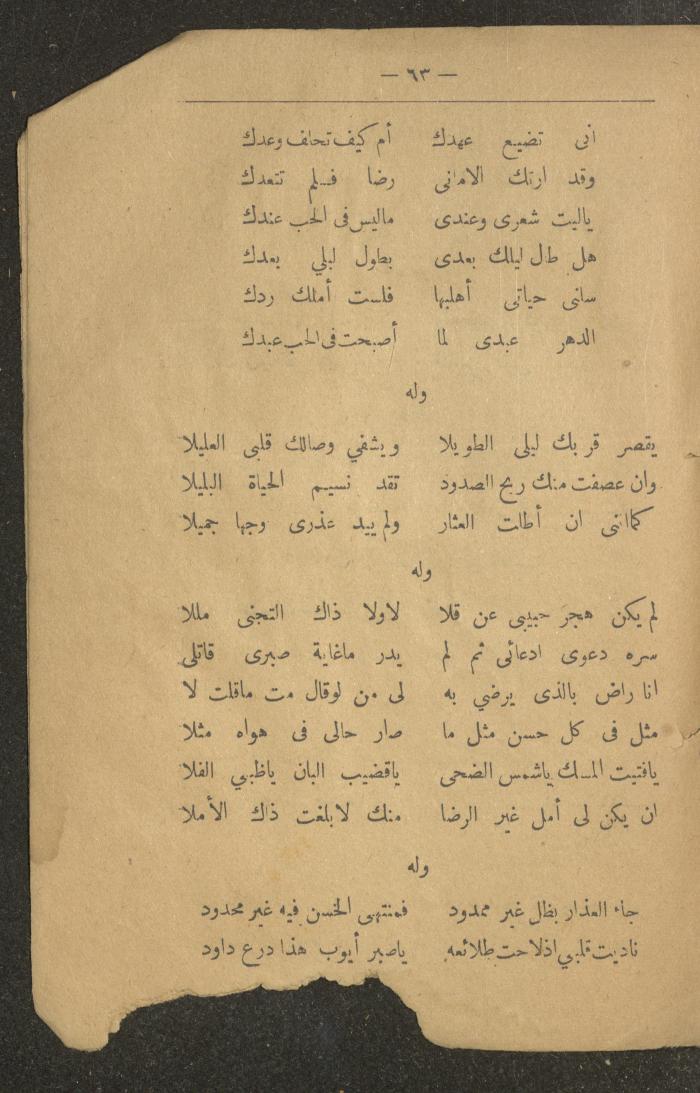 — ٦٣ —
انى تضيع عهدك أم كيف تخلف وعدك
وقد ارتك الامانى رضا فلم تتعدك
ياليت شعرى وعندى ماليس فى الحب عندك
هل طال ليلك بعدى بطول ليلي بعدك
سلنى حياتى أهبها فلست أملك ردك
الدهر عبدى لما أصبحت فى الحب عبدك
وله
يقصر قربك ليلى الطويلا ويشفي وصالك قلبى العليلا
وان عصفت منك ريح الصدود تقد نسيم الحياة البليلا
كما اننى ان أطلت العثار ولم يبد عذرى وجها جميلا
وله
لم يكن هجر حبيبى عن قلا لاولا ذاك التجنى مللا
سره دعوى ادعائى ثم لم يدر ماغاية صبرى قاتلى
انا راض بالذى يرضي به لى من لوقال مت ماقلت لا
مثل فى كل حسن مثل ما صار حالى فى هواه مثلا
يافتيت المسك ياشمس الضحى ياقضيب البان ياظبي الفلا
ان يكن لى أمل غير الرضا منك لابلغت ذاك الأملا
وله
جاء العذار بظل غير ممدود فمنتهى الحسن فيه غير محدود
ناديت قلبي اذلاحت طلائعه ياصبر أيوب هذا درع داود